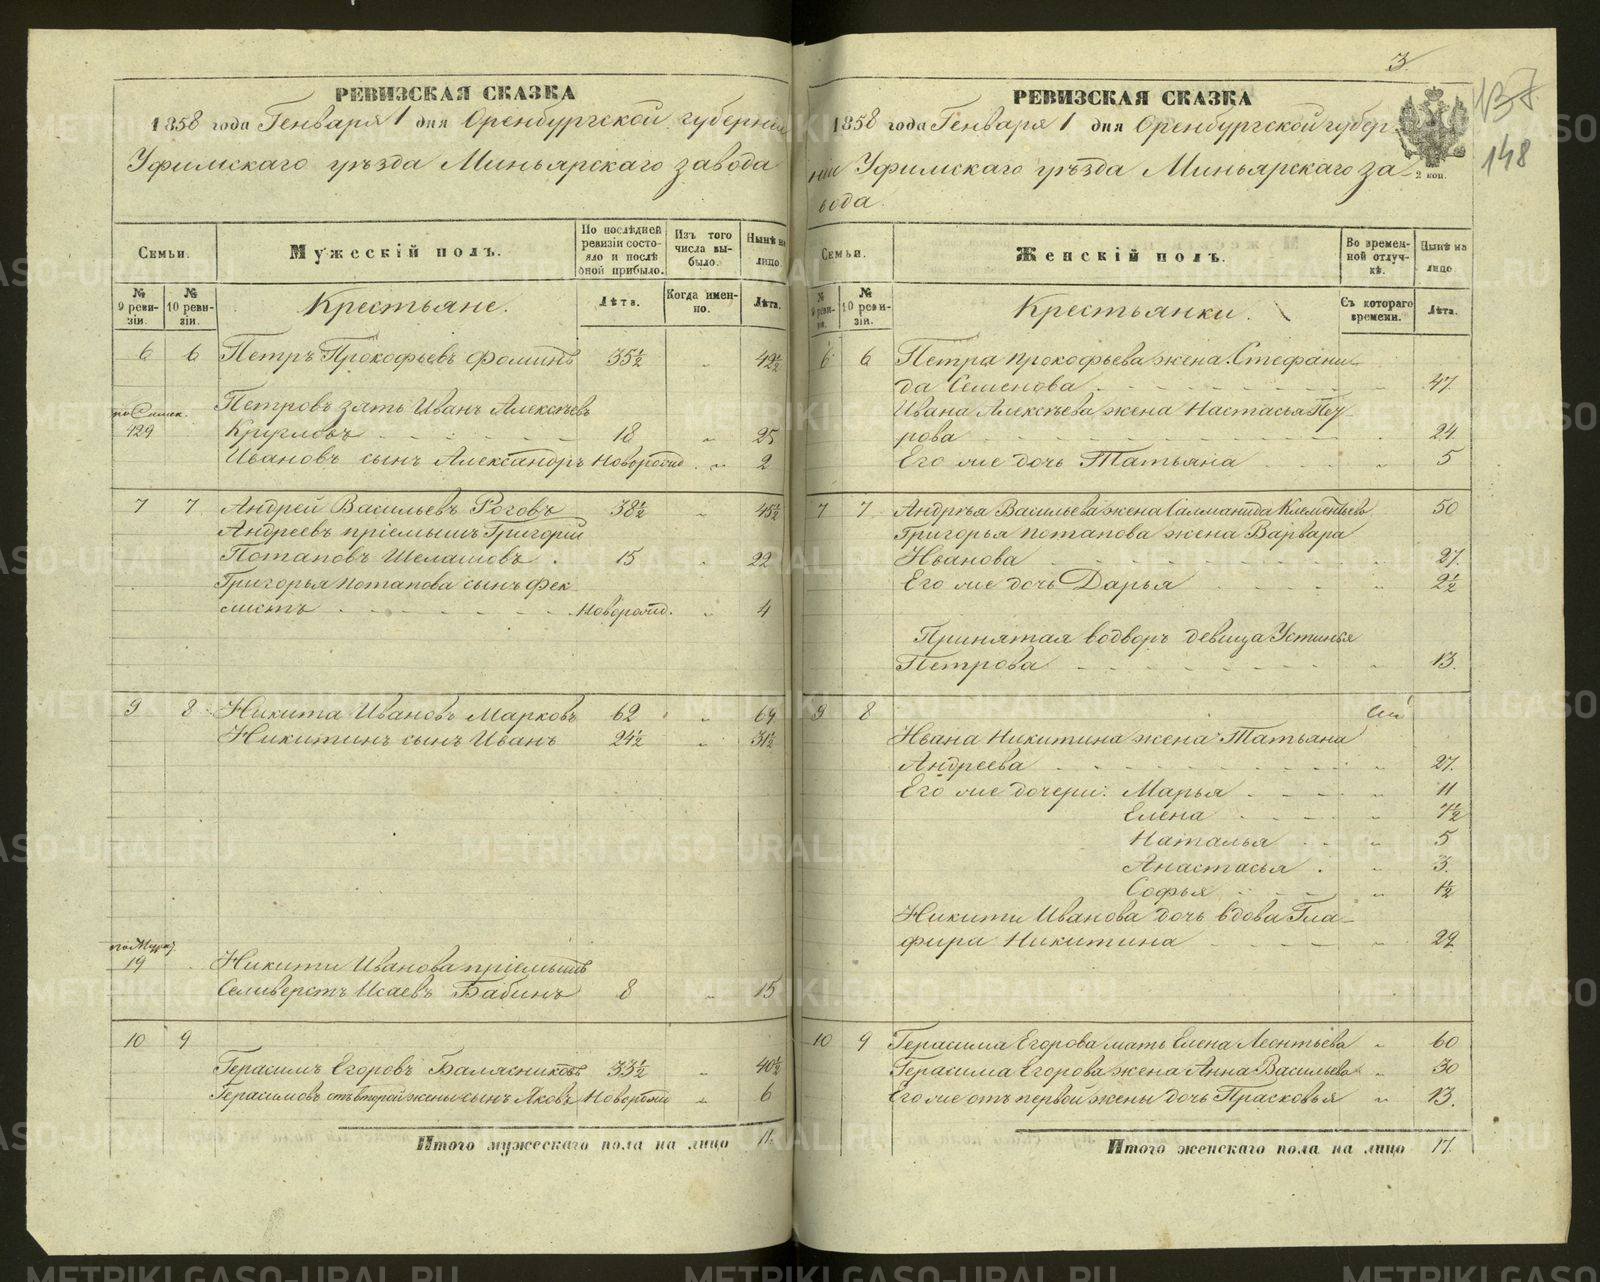 РЕВИЗСКАЯ СКАЗКА
1858 года Генваря 1 дня Оренбургской губернии
Уфимскаго уѣзда Миньярскаго завода
Семьи.
Мужескій полъ.
По послѣдней ревизіи состояло и послѣ оной прибыло.
Изъ того числа выбыло.
Нынѣ на лицо.
№ 9 ревизіи.
№ 10 ревизіи.
Крестьяне.
Лѣта.
Когда именно.
Лѣта.
6 6 Петръ Прокофьевъ Фоминъ 35½ „ 42½
Петровъ зять Иванъ Алексѣевъ
429 Кругловъ 18 „ 25
Ивановъ сынъ Александръ Новорожд. „ 2
7 7 Андрей Васильевъ Роговъ 38½ „ 45½
Андреевъ пріемышъ Григорій
Потаповъ Шелашовъ 15 „ 22
Григорья Потапова сынъ Фек
листъ Новорожд. „ 4
9 8 Никита Ивановъ Марковъ 62 „ 69
Никитинъ сынъ Иванъ 24½ „ 31½
19 Никиты Иванова пріемышъ
Селиверстъ Исаевъ Бабинъ 8 „ 15
10 9
Герасимъ Егоровъ Балясниковъ 33½ „ 40½
Герасимовъ отъ второй жены сынъ Яковъ Новорожд „ 6
Итого мужескаго пола на лицо 11.
3
137
148
РЕВИЗСКАЯ СКАЗКА
1858 года Генваря 1 дня Оренбургской губер
ніи Уфимскаго уѣзда Миньярскаго за
вода.
2 коп.
Семьи.
Женскій полъ.
Во временной отлучкѣ.
Нынѣ на лицо.
№ 9 ревизіи.
№ 10 ревизіи.
Крестьянки.
Съ котораго времени.
Лѣта.
6 6 Петра Прокофьева жена Стефани
да Семенова 47.
Ивана Алексѣева жена Настасья Пет
рова „ 24
Его же дочь Татьяна „ 5
7 7 Андрѣя Васильева жена Саломанида Клементьева 50
Григорья Потапова жена Варвара
Иванова „ 27.
Его же дочь Дарья „ 2½
Принятая водворъ девица Устинья
Петрова „ 13.
9 8
Ивана Никитина жена Татьяна
Андреева „ 27.
Его же дочери: Марья „ 11
Елена „ 7½
Наталья „ 5
Анастасья „ 3.
Софья „ 1½
Никиты Иванова дочь вдова Гла
фира Никитина „ 29.
10 9 Герасима Егорова мать Елена Леонтьева „ 60
Герасима Егорова жена Анна Васильева „ 30
Его же отъ первой жены дочь Прасковья „ 13.
Итого женскаго пола на лицо 17.
METRIKI.GASO-URAL.RU